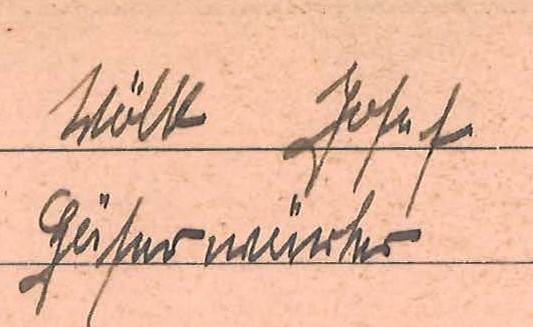 Wölk Josef
Häuserwärter